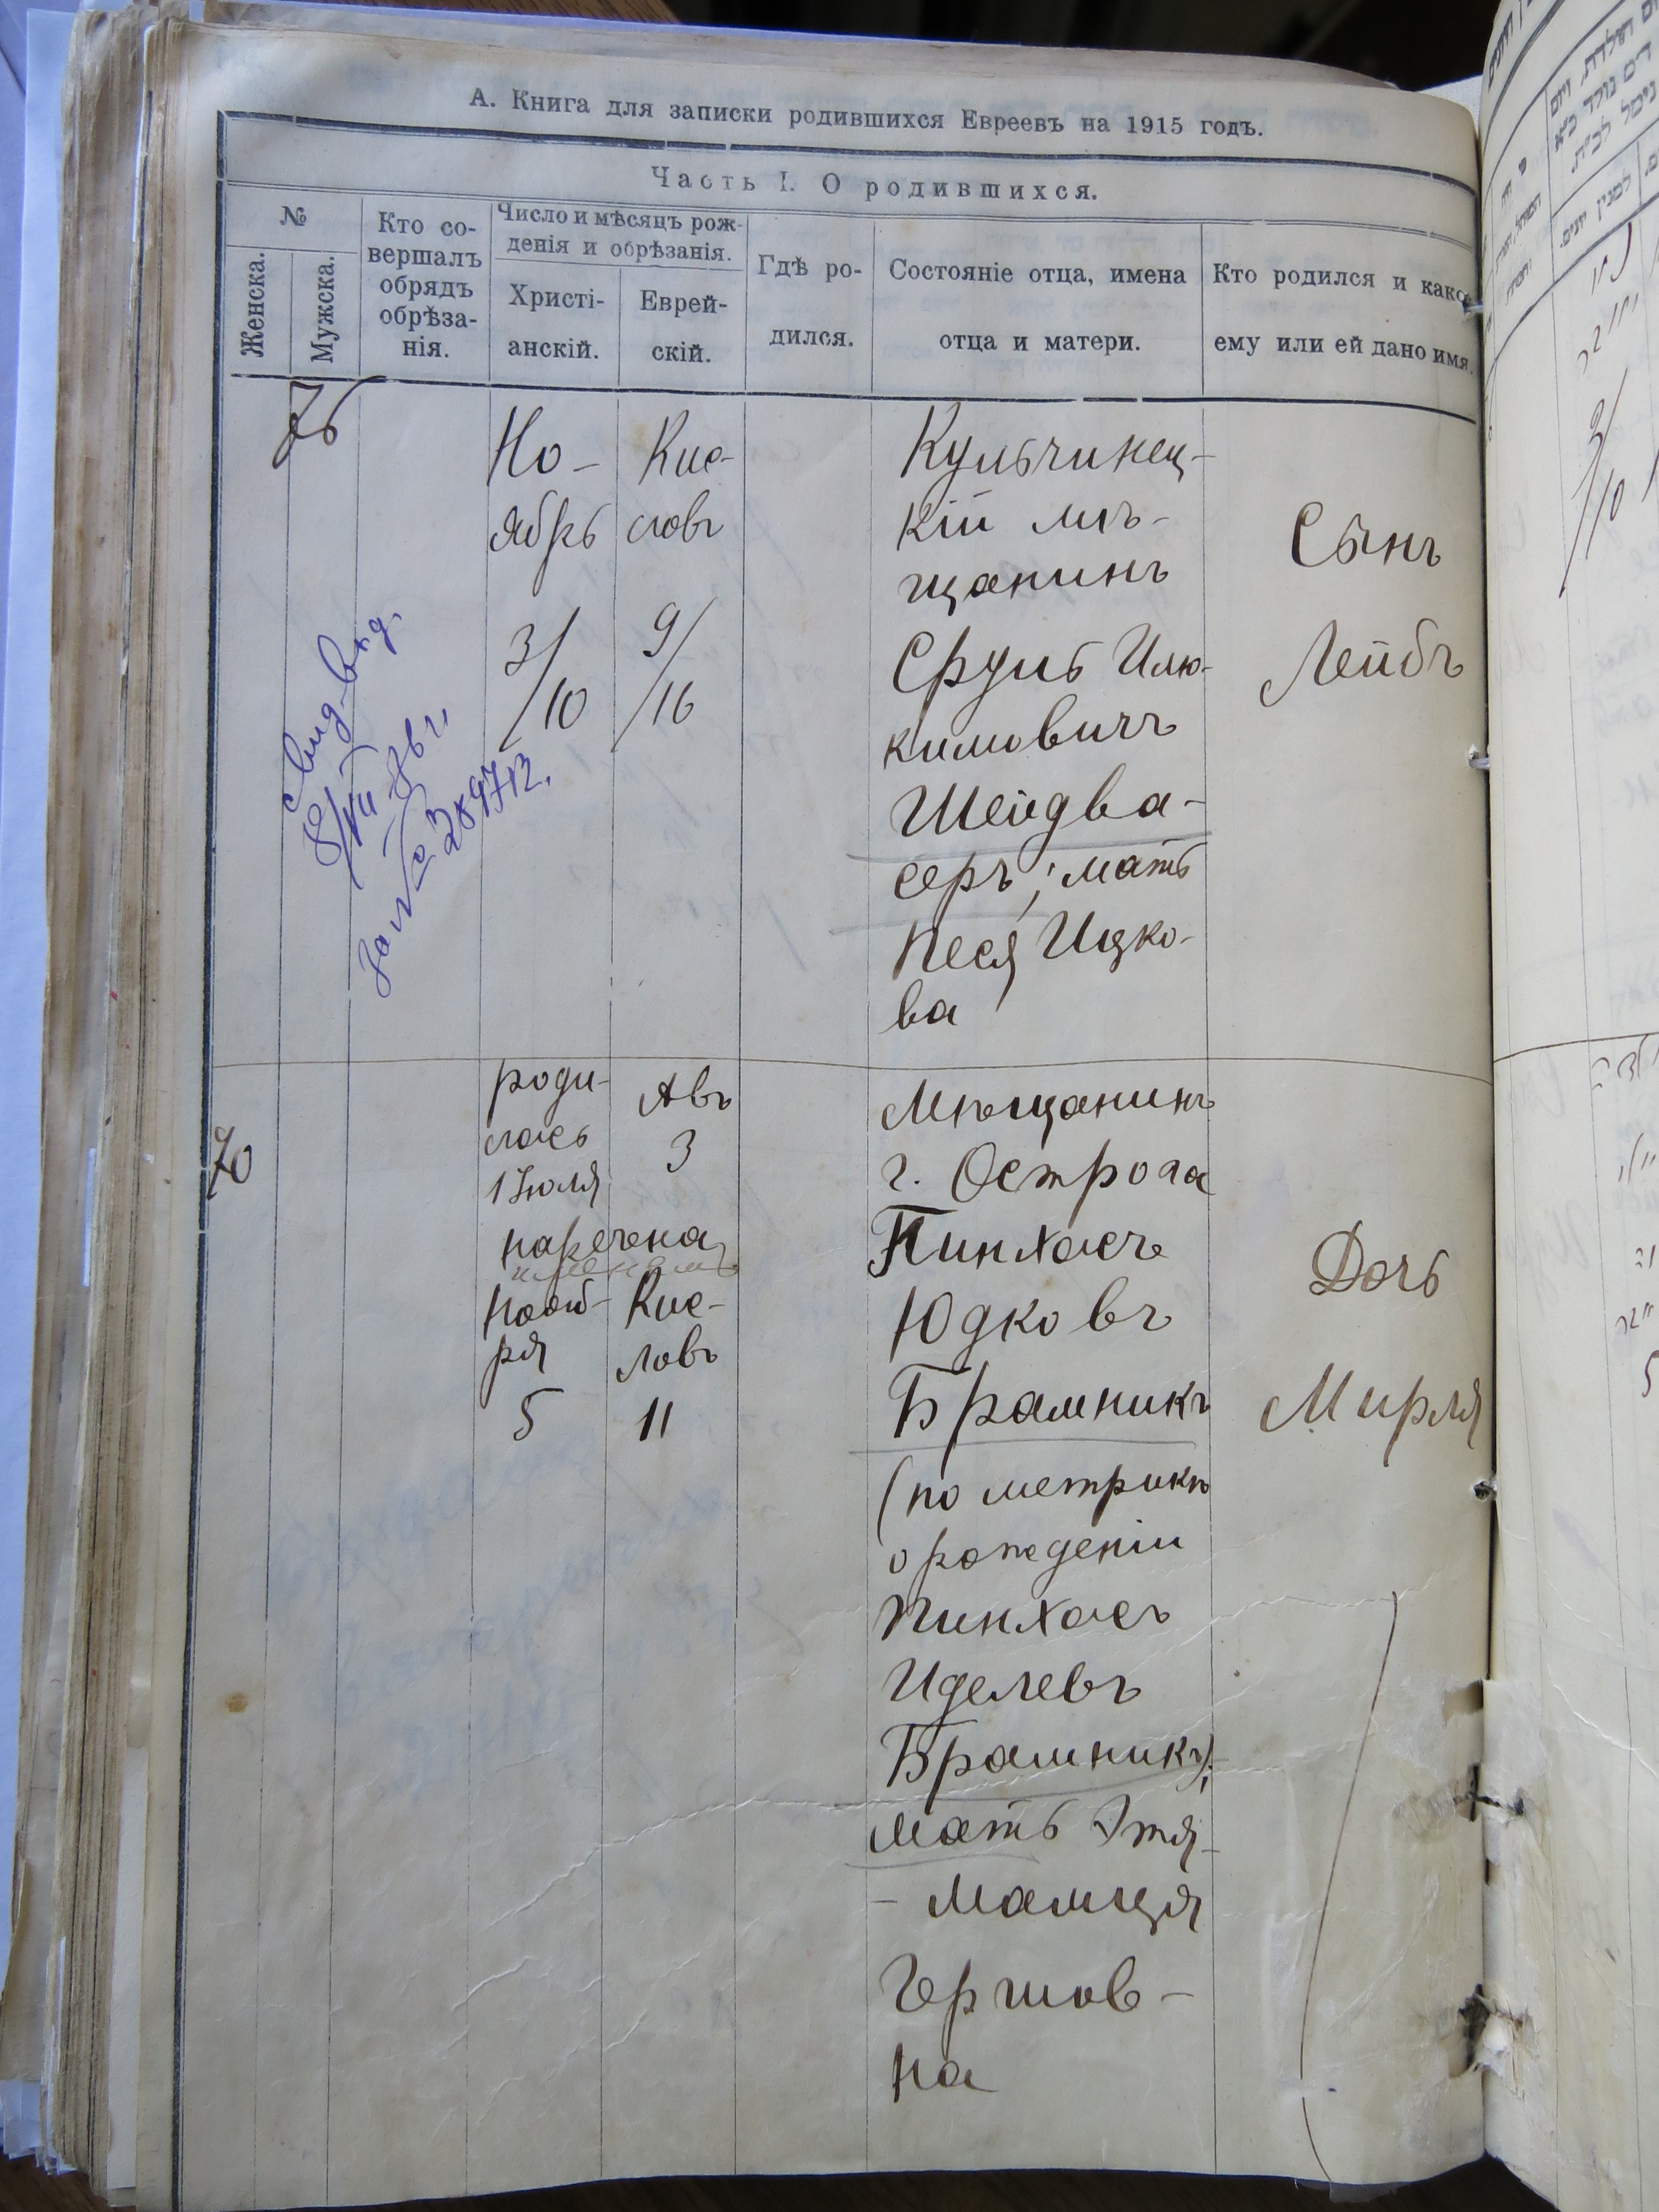 А. Книга для записки родившихся Евреевъ на 1915 годъ.
Часть I. О родившихся.
№
Женска.
Мужска.
Кто со-
вершалъ
обрядъ
обрѣза-
нія.
Число и мѣсяцъ рож-
денія и обрѣзанія.
Христі-
анскій.
Еврей-
скій.
Гдѣ ро-
дился.
Состояніе отца, имена
отца и матери.
Кто родился и како
ему или ей дано имя.
76
Но-
ябрь
3/10
Кис-
ловъ
9/16
Кульчинец-
кій мѣ-
щанинъ
Сруль
кимовичъ
Шейдва-
серъ; мать
Песя Ицко-
ва
Сынъ
Лейбъ
70
роди-
лась
1 Іюля
наречена
Нояб-
ря
5
Авъ
3
Кис-
ловъ
11
Мѣщанинъ
г. Острога
Пинхасъ
Юдковъ
Брамникъ
(по метрикѣ
о рожденіи
Пинхасъ
Иделевъ
Брамникъ);
мать Этя-
- Мамця
Гершов-
на
Дочь
Мирля